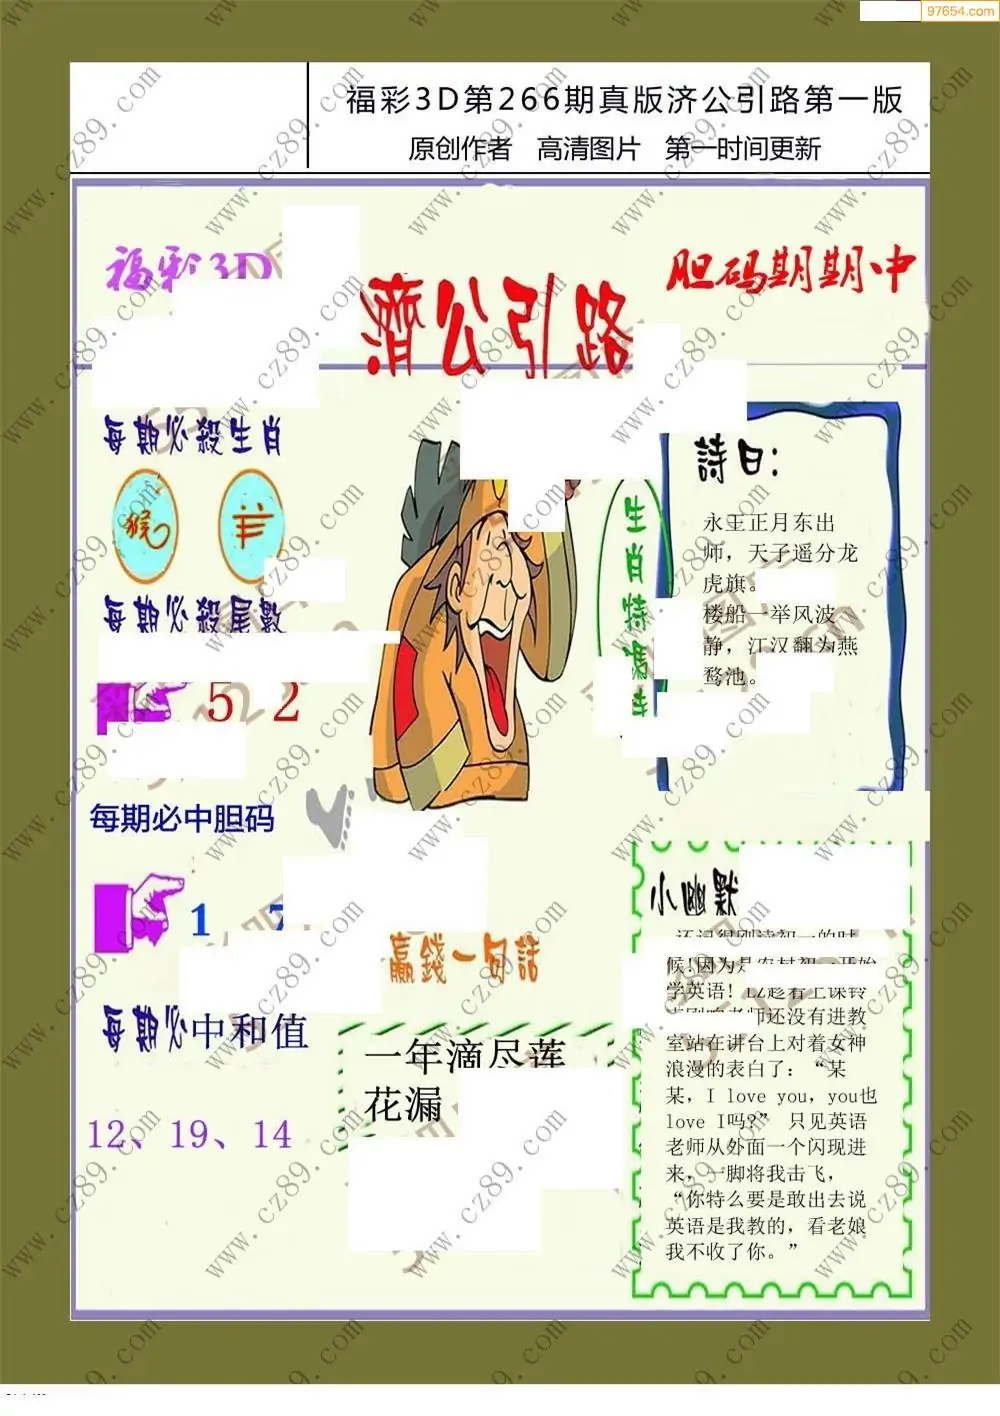 97654.com
福彩3D第266期真版济公引路第一版
原创作者 高清图片 第一时间更新
福彩3D
胆码期期中
濟公引路
每期必殺生肖
猴
羊
每期必殺尾數
5 2
每期必中胆码
1 7
每期必中和值
12、19、14
生肖特碼詩
詩曰:
永王正月东出
师，天子遥分龙
虎旗。
楼船一举风波
静，江汉翻为燕
鹜池。
赢錢一句話
一年滴尽莲
花漏
小幽默
还记得刚读初一的时
候!因为是农村初一开始
学英语! 趁着上课铃
声刚响老师还没有进教
室站在讲台上对着女神
浪漫的表白了：“某
某，I love you，you也
love I吗?” 只见英语
老师从外面一个闪现进
来，一脚将我击飞，
“你特么要是敢出去说
英语是我教的，看老娘
我不收了你。”
www.cz89.com